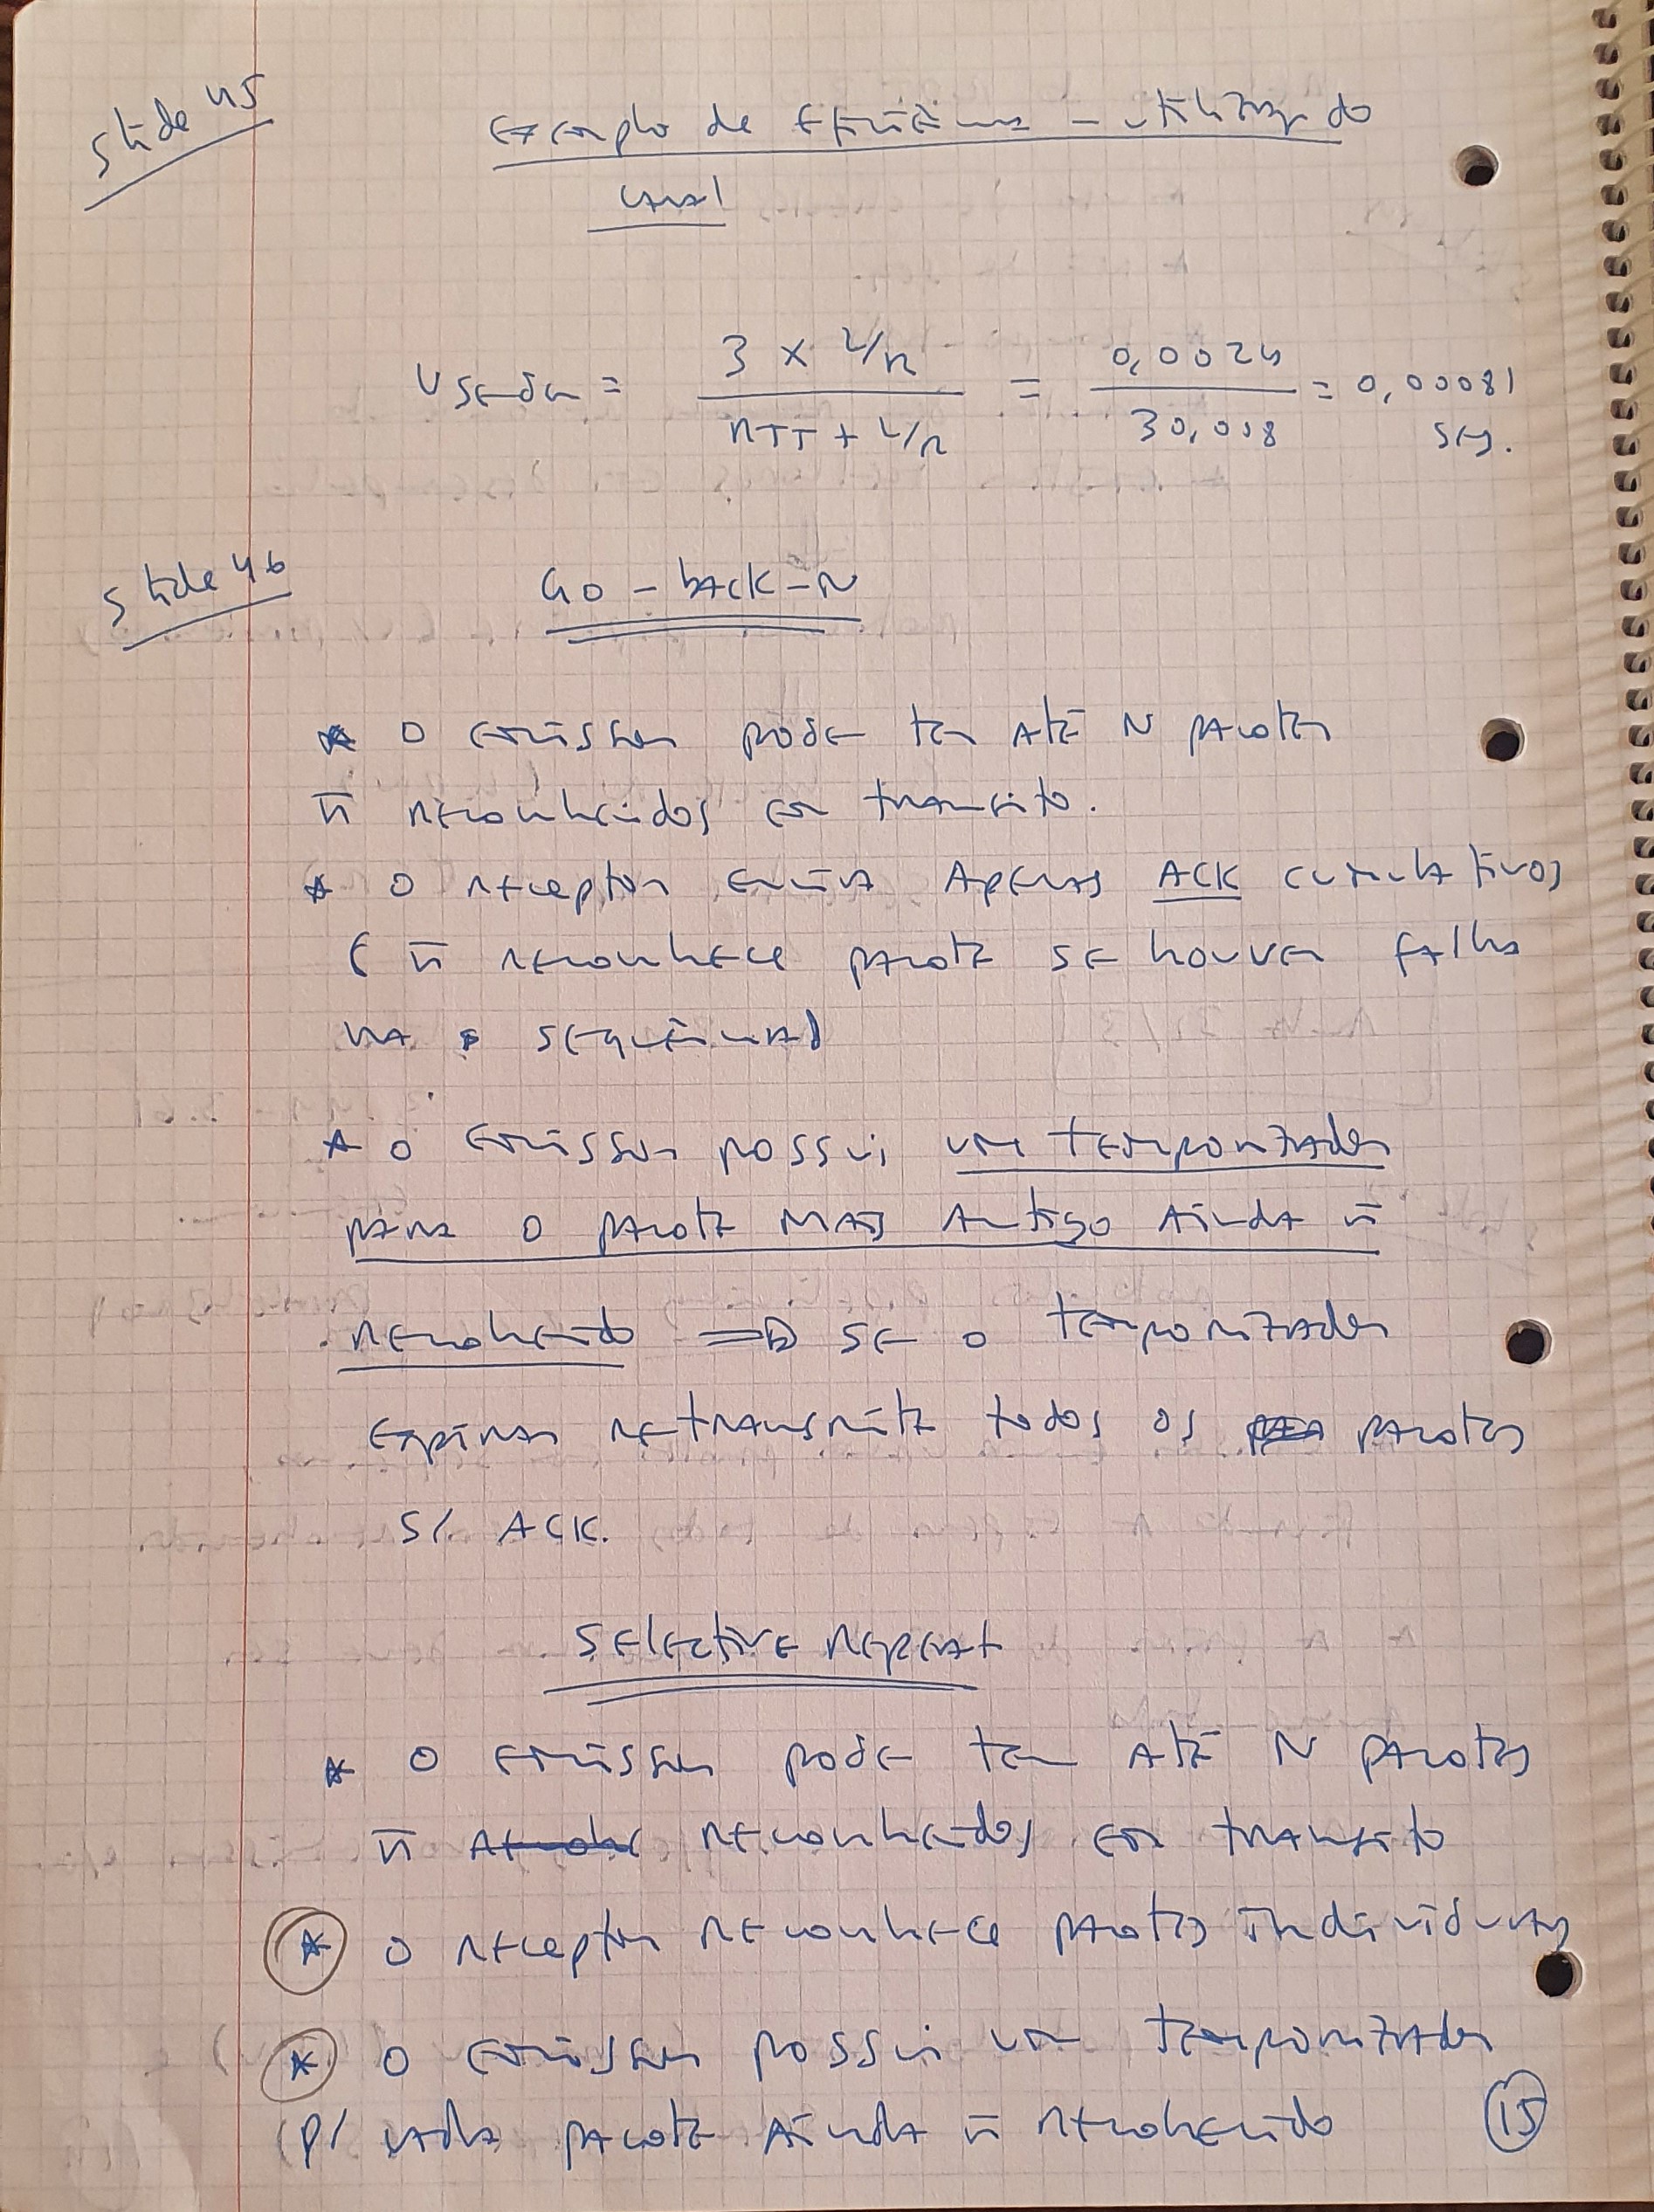 Slide 45
Exemplo de Eficiência - utilização do
canal
U sender = 3 x L/R / RTT + L/R = 0,0024 / 30,008 = 0,00081
seg.
Slide 46
Go-back-N
* O emissor pode ter até N pacotes
ñ reconhecidos em transito.
* O receptor envia Apenas ACK cumulativos
( ñ reconhece pacote se houver falha
na sequência)
* O emissor possui um temporizador
para o pacote mais Antigo Ainda ñ
reconhecido => se o temporizador
expirar retransmite todos os pacotes
S/ ACK.
Selective Repeat
* O emissor pode ter até N pacotes
ñ reconhecidos em transito
* O receptor reconhece pacotes individuais
* O emissor possui um temporizador
(p/ cada pacote Ainda ñ reconhecido
15